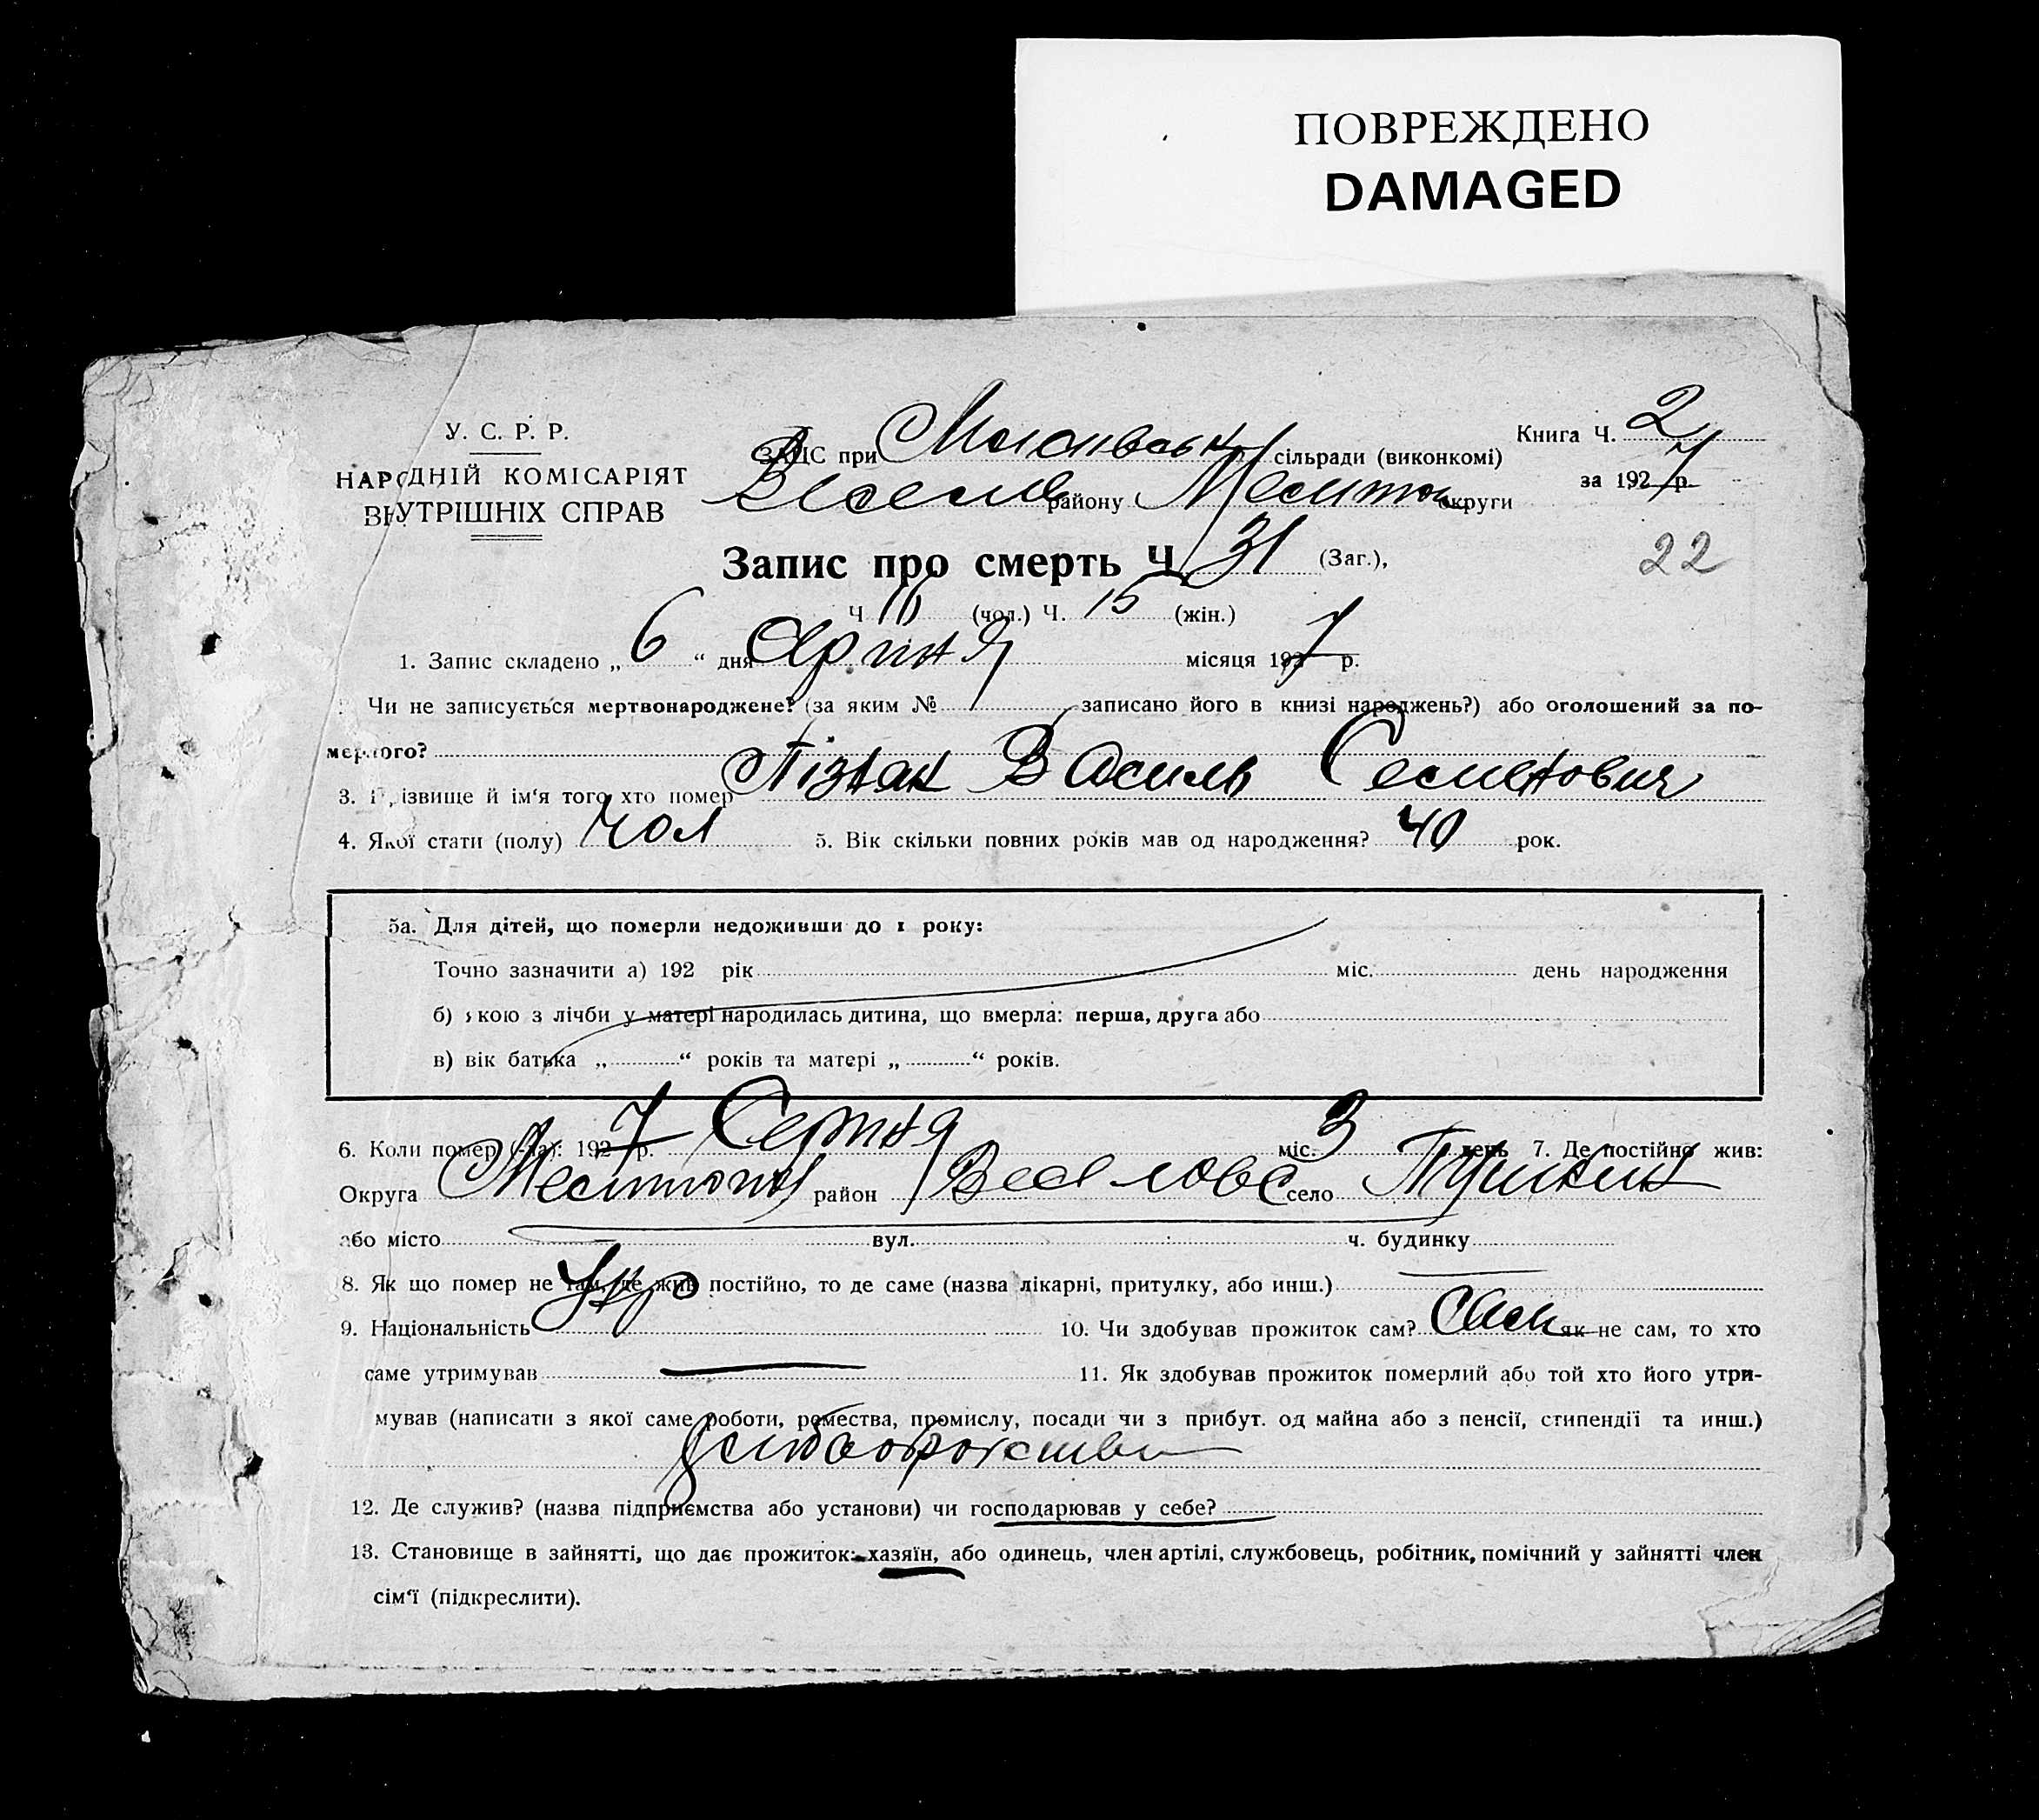 ПОВРЕЖДЕНО
DAMAGED
У. С. Р. Р.
НАРОДНІЙ КОМІСАРІЯТ
ВНУТРІШНІХ СПРАВ
ЗАЦС при сільради (виконкомі)
Веселів району Меліто округи
Книга Ч. 2
за 1927 р.
22
Запис про смерть Ч 31 (Заг.),
Ч 16 (чол.) Ч. 15 (жін.)
1. Запис складено „ 6 “ дня Серпня місяця 1927 р.
2. Чи не записується мертвонароджене? (за яким № записано його в книзі народжень?) або оголошений за по-
мерлого?
3. Прізвище й ім‘я того хто помер Василь Семенович
4. Якої стати (полу) чол 5. Вік скільки повних років мав од народження? 40 рок.
5а. Для дітей, що померли недоживши до 1 року:
Точно зазначити а) 192 рік міс. день народження
б) якою з лічби у матері народилась дитина, що вмерла: перша, друга або
в) вік батька „ “ років та матері „ “ років.
6. Коли помер (-ла): 1927 р. Серпня міс. 3 день 7. Де постійно жив:
Округа Мелітопол район Веселовс село
або місто вул. ч. будинку
8. Як що помер не там, де жив постійно, то де саме (назва лікарні, притулку, або инш.)
9. Національність Укр 10. Чи здобував прожиток сам? Сам як не сам, то хто
саме утримував 11. Як здобував прожиток померлий або той хто його утри-
мував (написати з якої саме роботи, ремества, промислу, посади чи з прибут. од майна або з пенсії, стипендії та инш.)
12. Де служив? (назва підприємства або установи) чи господарював у себе?
13. Становище в зайнятті, що дає прожиток: хазяїн, або одинець, член артілі, службовець, робітник, помічний у зайнятті член
сім‘ї (підкреслити).